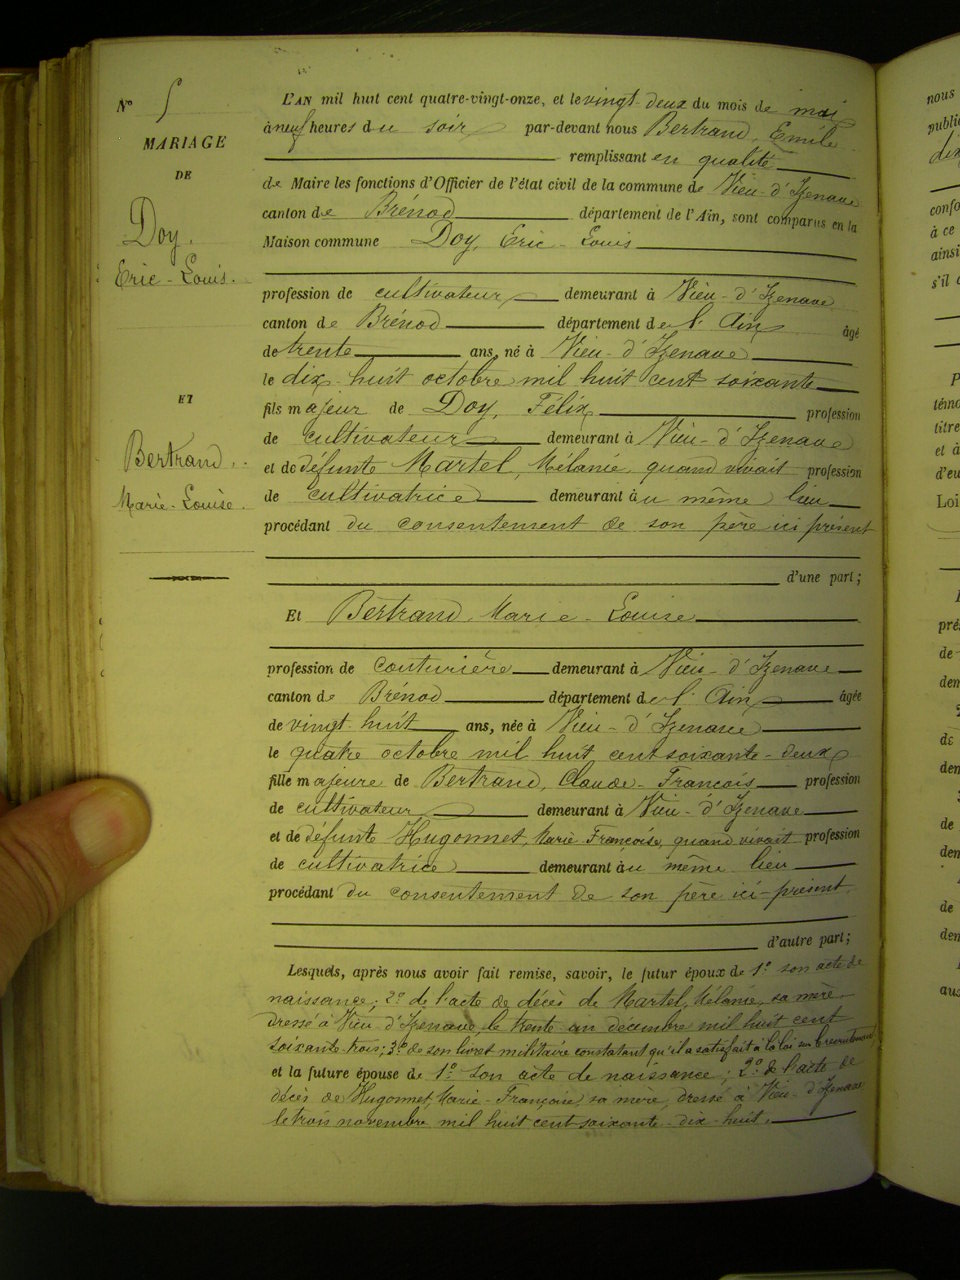 N° 5
MARIAGE
DE
Doy.
Eric-Louis.
ET
Bertrand.
Marie-Louise.
L'AN mil huit cent quatre-vingt-onze, et le vingt-deux du mois de mai
à neuf heures du soir par-devant nous Bertrand, Emile
remplissant en qualité
de Maire les fonctions d'Officier de l'état civil de la commune de Vieu-d'Izenave
canton de Brénod département de l'Ain, sont comparus en la
Maison commune Doy, Eric-Louis
profession de cultivateur demeurant à Vieu-d'Izenave
canton de Brénod département de l'Ain âgé
de trente ans, né à Vieu-d'Izenave
le dix-huit octobre mil huit cent soixante
fils majeur de Doy, Félix profession
de cultivateur demeurant à Vieu-d'Izenave
et de défunte Martel, Mélanie, quand vivait profession
de cultivatrice demeurant au même lieu
procédant du consentement de son père ici présent
d'une part;
Et Bertrand, Marie-Louise
profession de couturière demeurant à Vieu-d'Izenave
canton de Brénod département de l'Ain âgée
de vingt-huit ans, née à Vieu-d'Izenave
le quatre octobre mil huit cent soixante-deux
fille majeure de Bertrand, Claude-François profession
de cultivateur demeurant à Vieu-d'Izenave
et de défunte Hugonnet, Marie-Françoise, quand vivait profession
de cultivatrice demeurant au même lieu
procédant du consentement de son père ici-présent
d'autre part;
Lesquels, après nous avoir fait remise, savoir, le futur époux de 1° son acte de
naissance; 2° de l'acte de décès de Martel, Mélanie, sa mère
dressé à Vieu-d'Izenave, le trente un décembre mil huit cent
soixante-trois; 3° de son livret militaire constatant qu'il a satisfait à la loi sur le recrutement
et la future épouse de 1° son acte de naissance; 2° de l'acte de
décès de Hugonnet, Marie-Françoise, sa mère, dressé à Vieu-d'Izenave
le trois novembre mil huit cent soixante-dix-huit.
nous
confo
à ce
ainsi
s'il
témo
titre
et à
d'eu
Loi
pré
de
dem
de
dem
de
dem
de
dem
aus